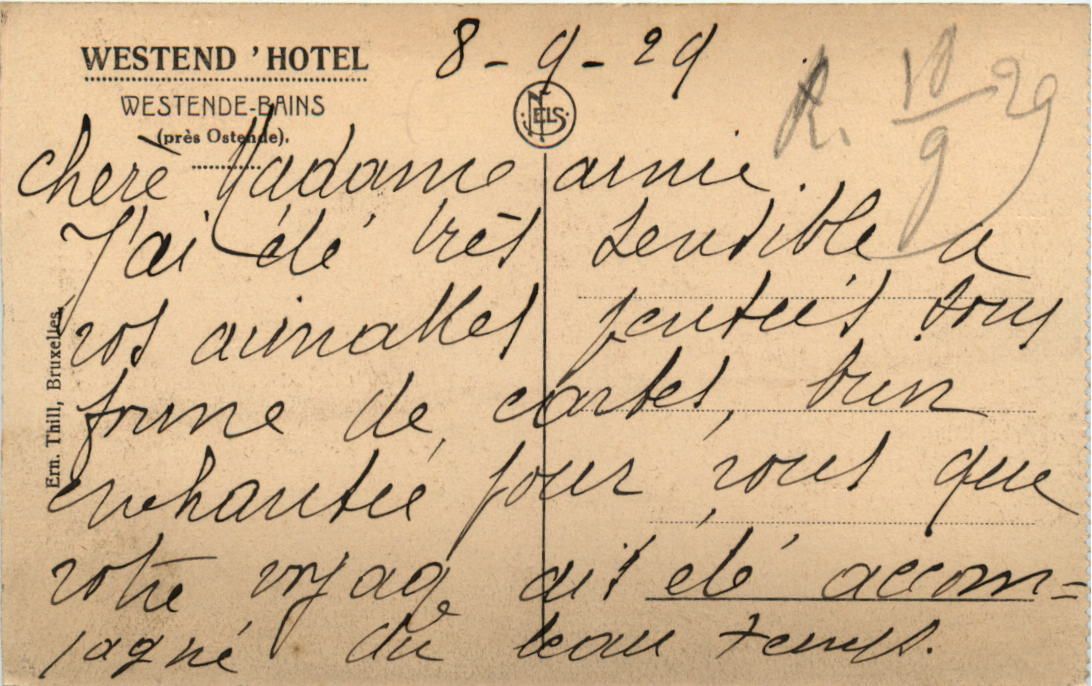 WESTEND 'HOTEL
WESTENDE-BAINS
(près Ostende).
8-9-29
NELS
R. 10/9 29
Ern. Thill, Bruxelles.
chère Madame amie.
J'ai été très sensible a
vos aimables pensées sous
forme de cartes, bien
enchantée pour vous que
votre voyage ait été accom=
pagné du beau temps.